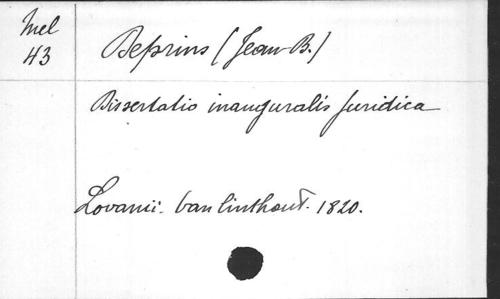 Mel
43
Deprins (Jean-B.)
Dissertatio inauguralis juridica
Lovanii. Vanlinthout. 1820.